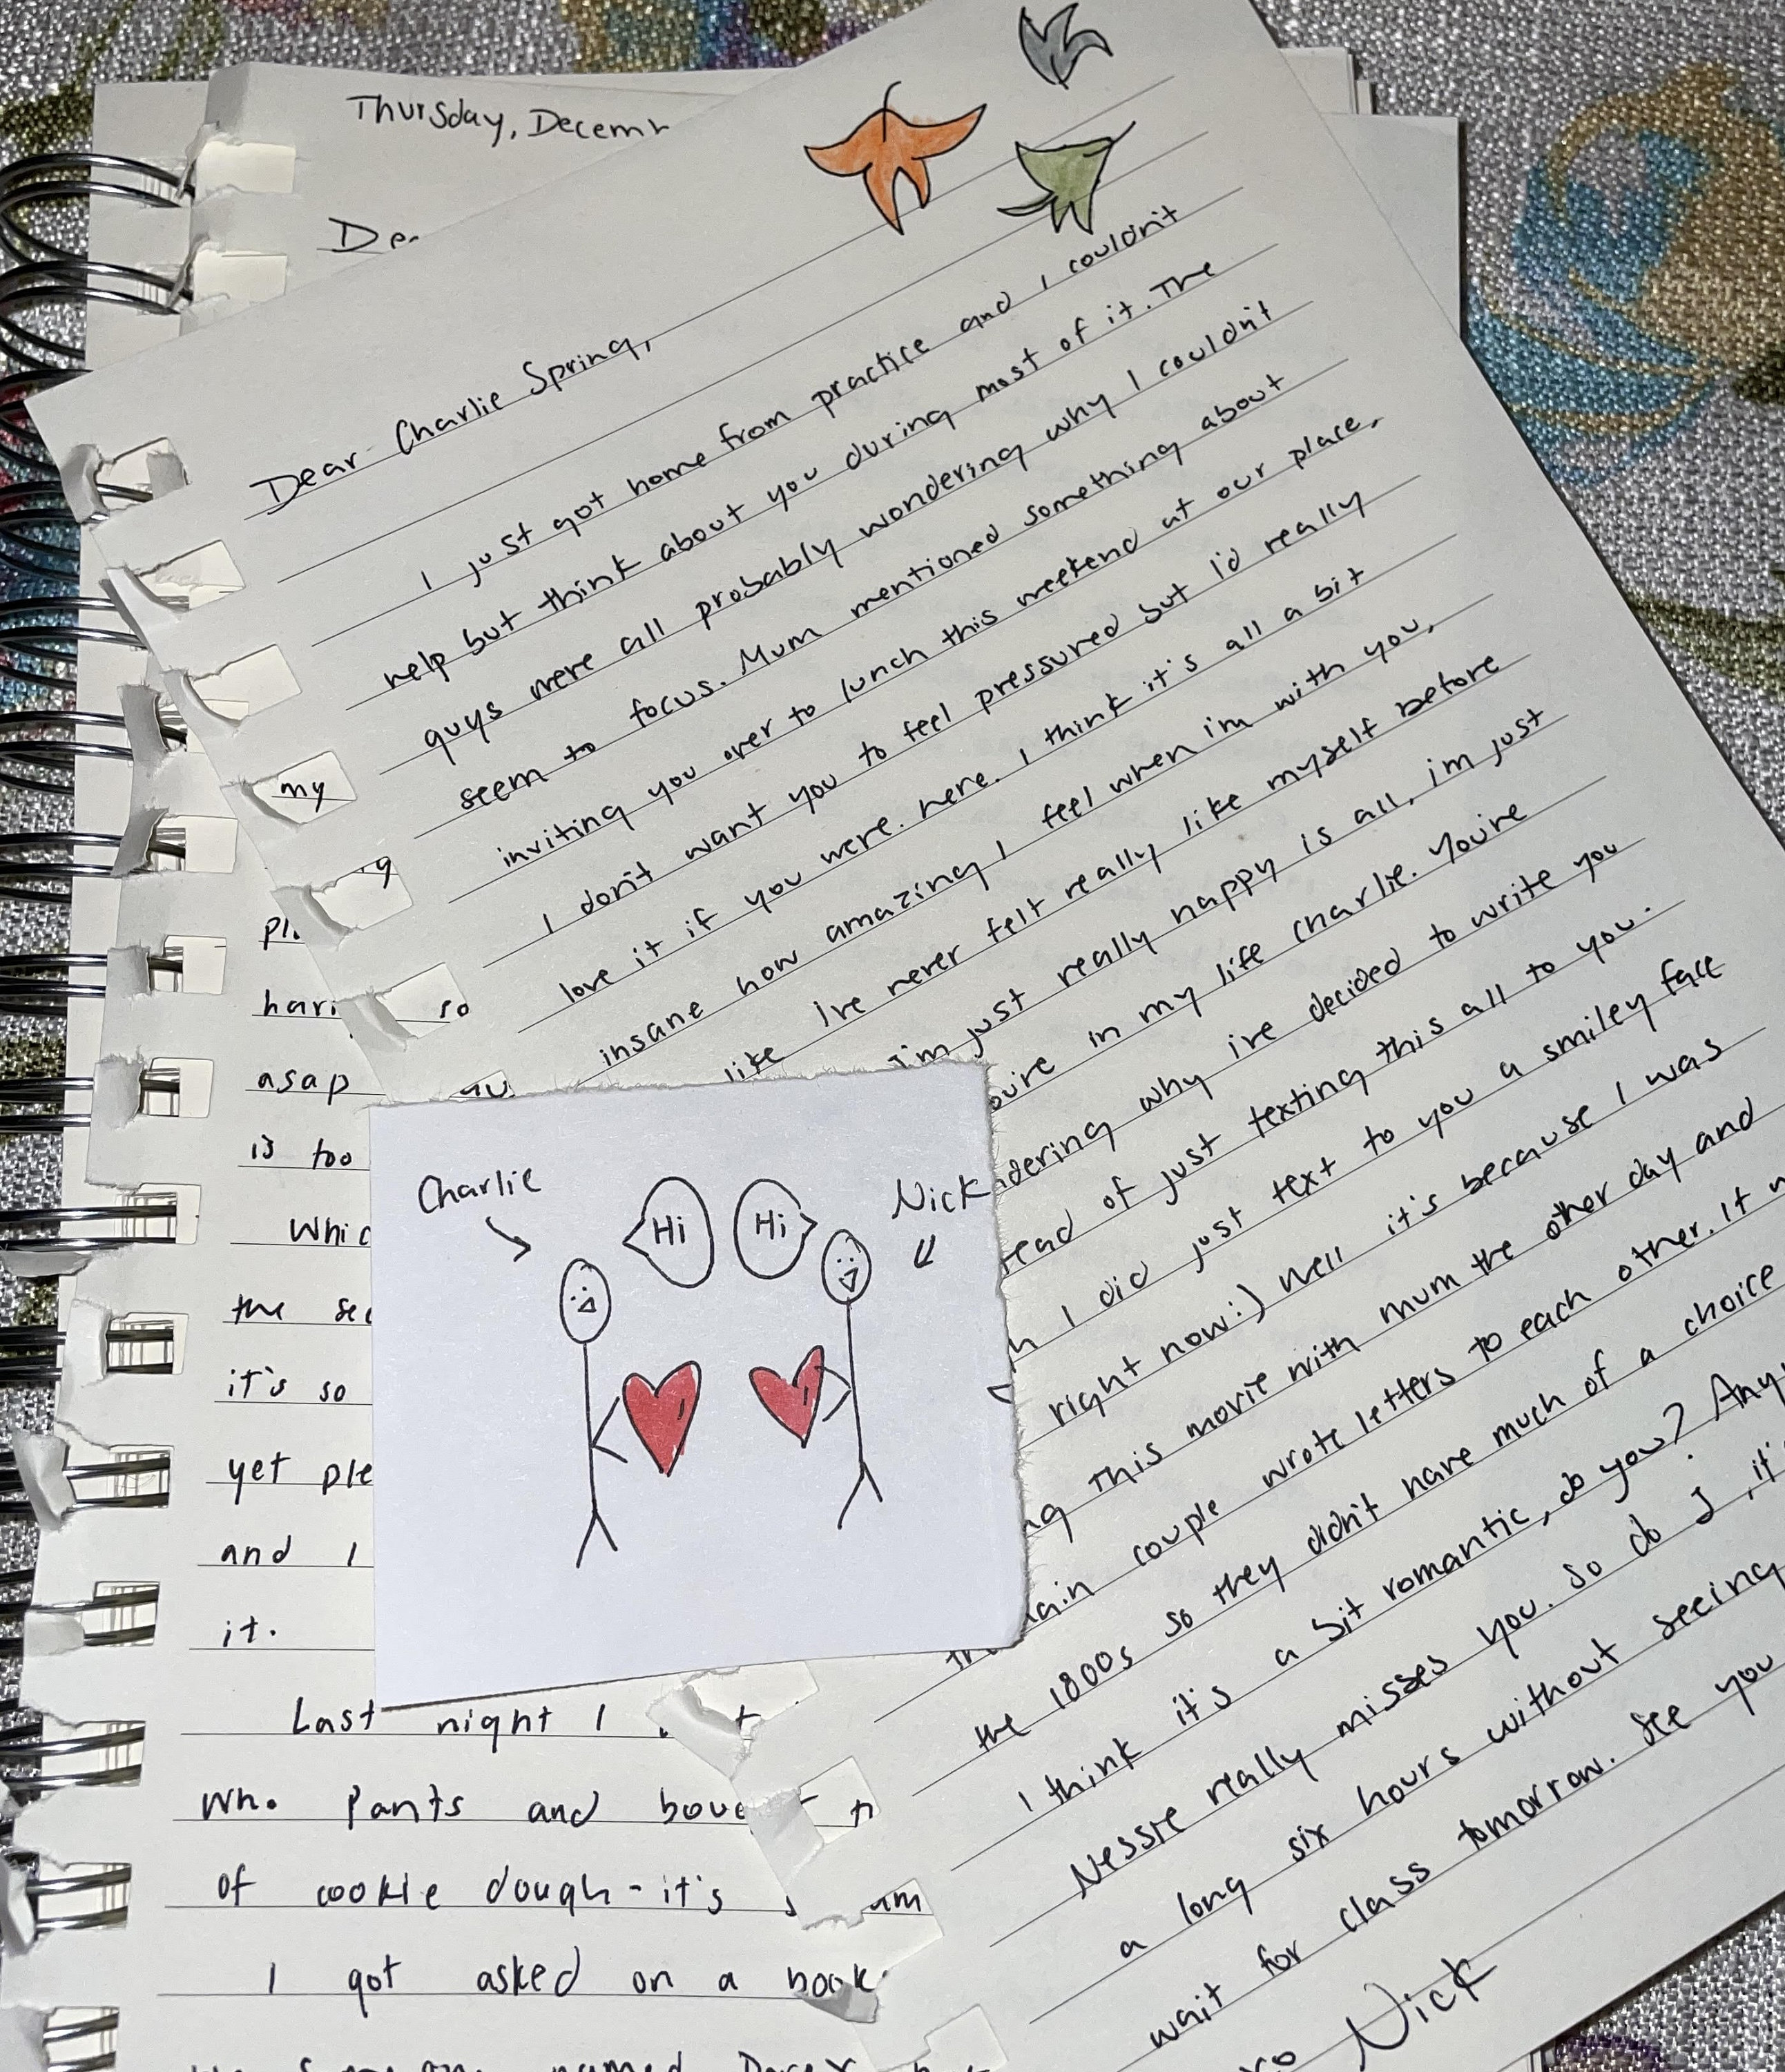 Thursday,
Dear Charlie Spring,
I just got home from practice and I couldn't
help but think about you during most of it. The
guys were all probably wondering why I couldn't
seem to focus. Mum mentioned something about
inviting you over to lunch this weekend at our place,
I don't want you to feel pressured but I'd really
love it if you were here. I think it's all a bit
insane how amazing I feel when im with you,
like I've never felt really like myself before
I'm just really happy is all, im just
in my life Charlie. You're
why ive decided to write you
of just texting this all to you.
I did just text to you a smiley face
right now:) Well it's because I was
this movie with mum the other day and
couple wrote letters to each other. It
the 1800s so they didn't have much of a choice
I think it's a bit romantic, do you?
Nessie really misses you. So do I,
a long six hours without seeing
wait for class tomorrow. See you
Nick
Charlie
Hi
Hi
Nick
my
so
asap
is too
the
it's so
yet
and I
it.
Last night I
pants and
of cookie dough-it's
I got asked on a
named